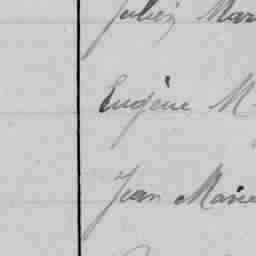 Julien Mar
Eugène M
Jean Marie